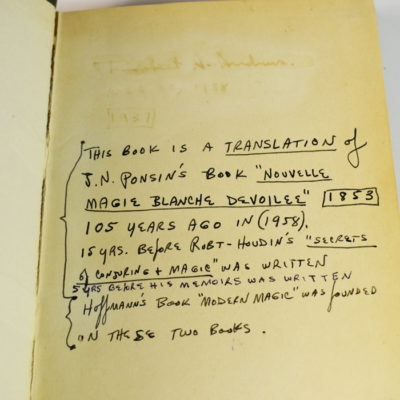 THIS BOOK IS A TRANSLATION of
J.N. PONSIN'S BOOK "NOUVELLE
MAGIE BLANCHE DEVOILEE" 1853
105 YEARS AGO IN (1958).
15 YRS. BEFORE ROBT-HOUDIN'S "SECRETS
of CONJURING + MAGIC" WAS WRITTEN
5 YRS BEFORE HIS MEMOIRS WAS WRITTEN
Hoffmann's BOOK "MODERN MAGIC" WAS fOUNDED
ON THESE TWO BOOKS.